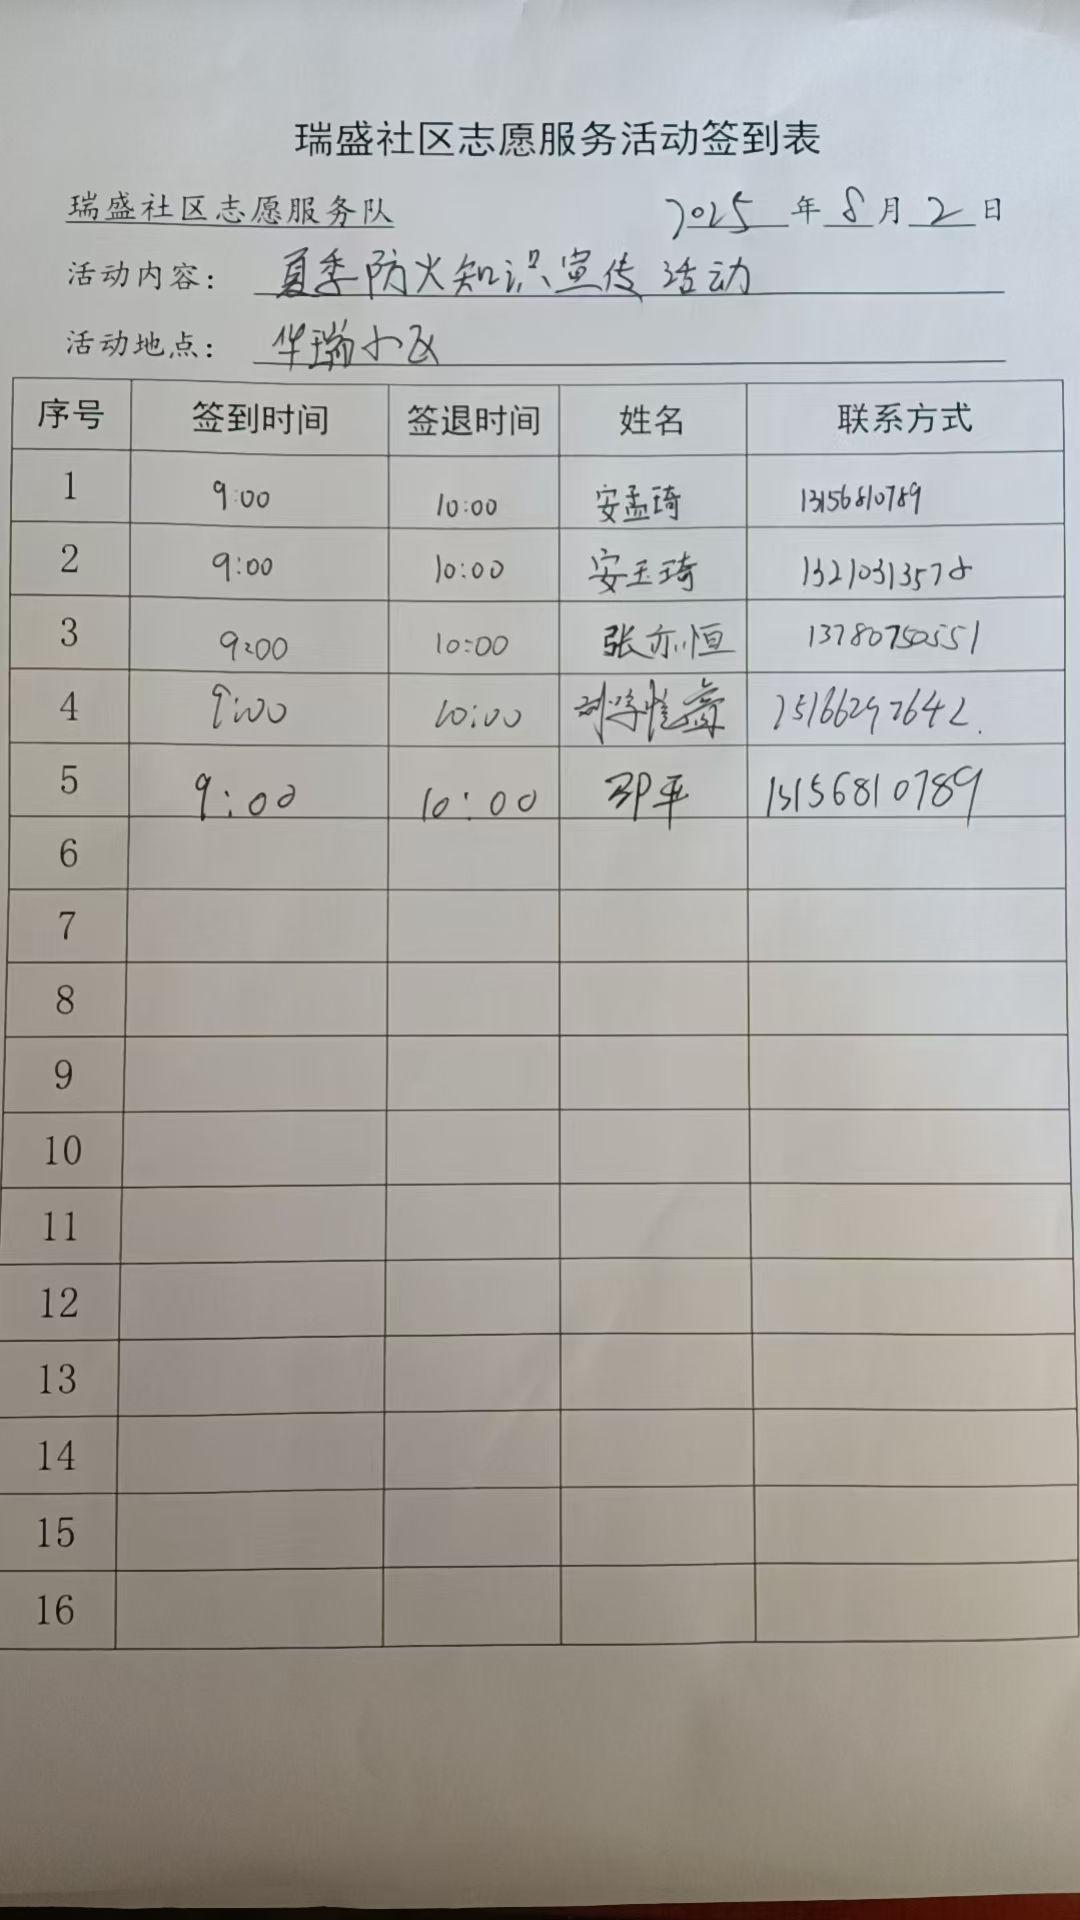 瑞盛社区志愿服务活动签到表
瑞盛社区志愿服务队 2025年8月2日
活动内容: 夏季防火知识宣传活动
活动地点: 华瑞小区
序号 签到时间 签退时间 姓名 联系方式
1 9:00 10:00 安孟琦 13156810789
2 9:00 10:00 安玉琦 13210313578
3 9:00 10:00 张亦恒 13780750551
4 9:00 10:00 15166297642.
5 9:00 10:00 邵平 13156810789
6
7
8
9
10
11
12
13
14
15
16